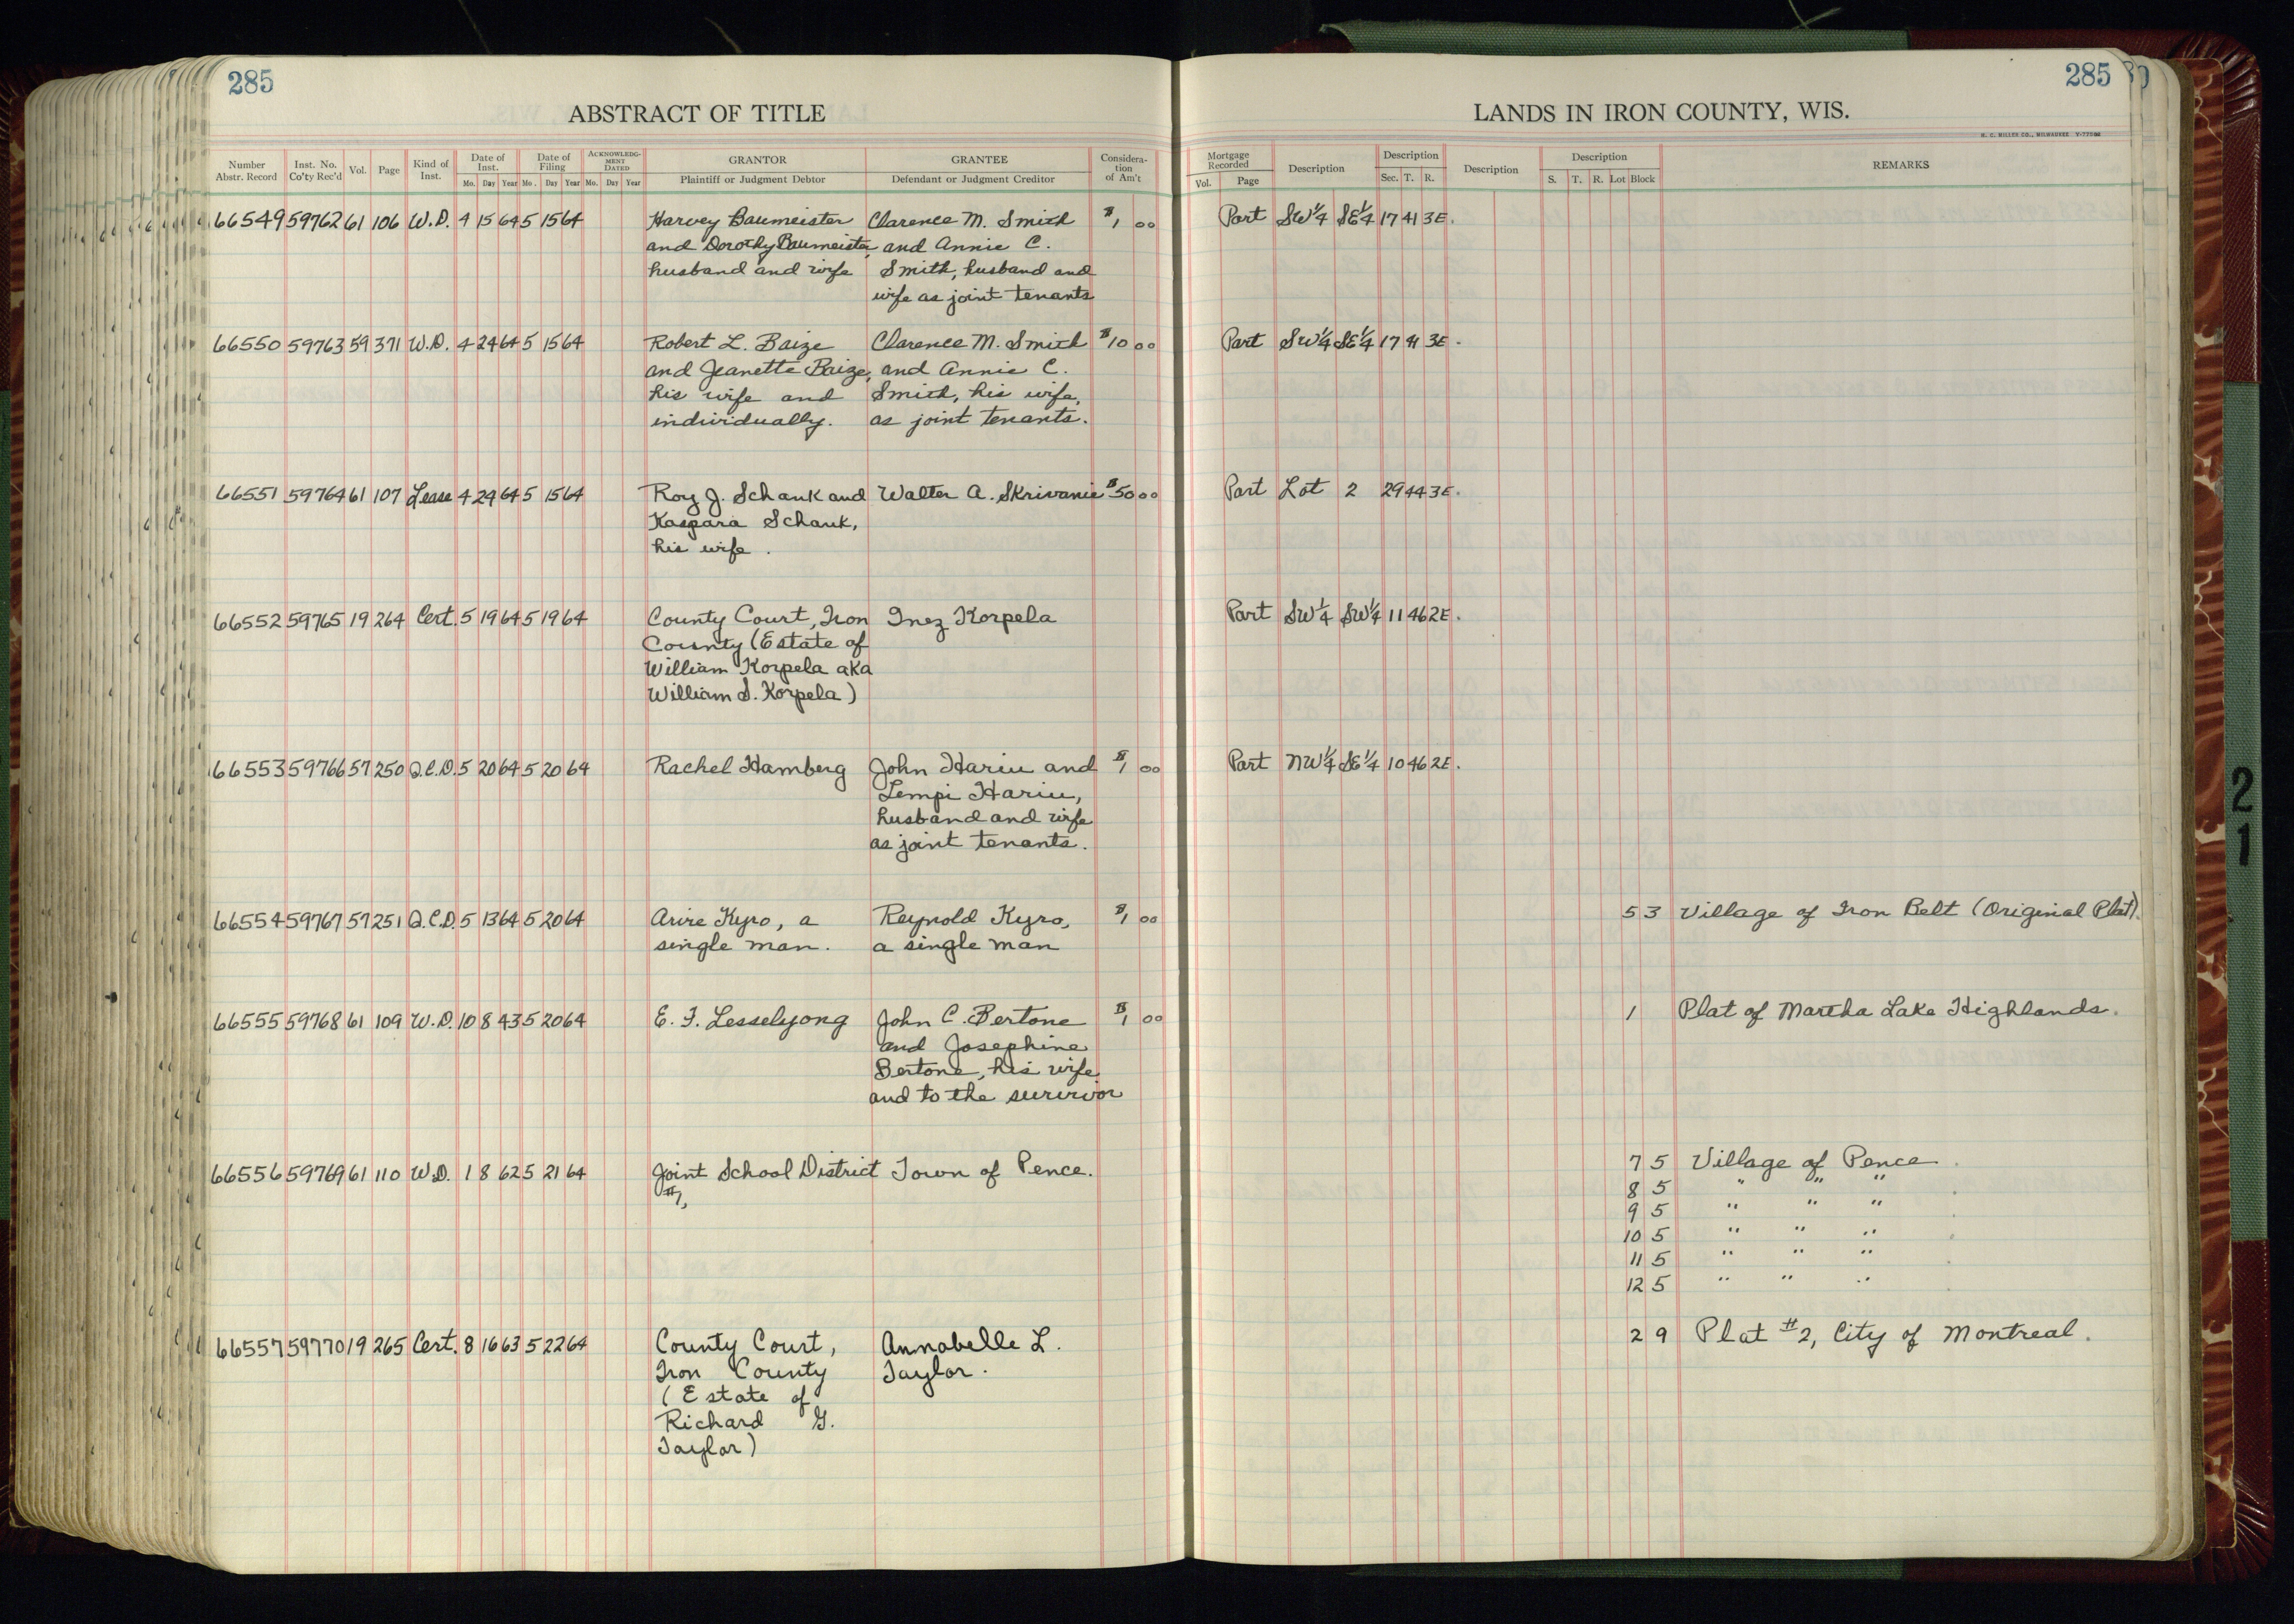 285
ABSTRACT OF TITLE
Number Abstr. Record Inst. No. Co'ty Rec'd Vol. Page Kind of Inst. Date of Inst. Mo. Day Year Date of Filing Mo. Day Year ACKNOWLEDGMENT DATED Mo. Day Year GRANTOR Plaintiff or Judgment Debtor GRANTEE Defendant or Judgment Creditor Consideration of Am't
66549 59762 61 106 W.D. 4 15 64 5 15 64 Harvey Baumeister Clarence M. Smith $1 00
and Dorothy Baumeister, and Annie C.
husband and wife Smith, husband and
wife as joint tenants
66550 59763 59 371 W.D. 4 24 64 5 15 64 Robert L. Baize Clarence M. Smith $10 00
and Jeanette Baize, and Annie C.
his wife and Smith, his wife,
individually. as joint tenants.
66551 59764 61 107 Lease 4 29 64 5 15 64 Roy J. Schank and Walter A. Skrivanie $50 00
Kaspara Schank,
his wife.
66552 59765 19 264 Cert. 5 19 64 5 19 64 County Court, Iron Inez Korpela
County (Estate of
William Korpela aka
William S. Korpela)
66553 59766 57 250 Q.C.D. 5 20 64 5 20 64 Rachel Hamberg John Hariu and $1 00
Lempi Hariu,
husband and wife
as joint tenants.
66554 59767 57 251 Q.C.D. 5 13 64 5 20 64 Kyro, a Reynold Kyro, $1 00
single man. a single man
66555 59768 61 109 W.D. 10 8 43 5 20 64 E. F. Lesselyong John C. Bertone $1 00
and Josephine
Bertone, his wife
and to the survivor
66556 59769 61 110 W.D. 1 8 62 5 21 64 Joint School District Town of Pence.
#1,
66557 59770 19 265 Cert. 8 16 63 5 22 64 County Court, Annabelle L.
Iron County Taylor.
(Estate of
Richard G.
Taylor)
285
LANDS IN IRON COUNTY, WIS.
H. C. MILLER CO., MILWAUKEE
Mortgage Recorded Vol. Page Description Description Sec. T. R. Description Description S. T. R. Lot Block REMARKS
Part SW¼ SE¼ 17 41 3E.
Part SW¼ SE¼ 17 41 3E.
Part Lot 2 29 44 3E.
Part SW¼ SW¼ 11 46 2E.
Part NW¼ SE¼ 10 46 2E.
5 3 Village of Iron Belt (Original Plat).
1 Plat of Martha Lake Highlands.
7 5 Village of Pence
8 5 " " "
9 5 " " "
10 5 " " "
11 5 " " "
12 5 " " "
2 9 Plat #2, City of Montreal.
2
1